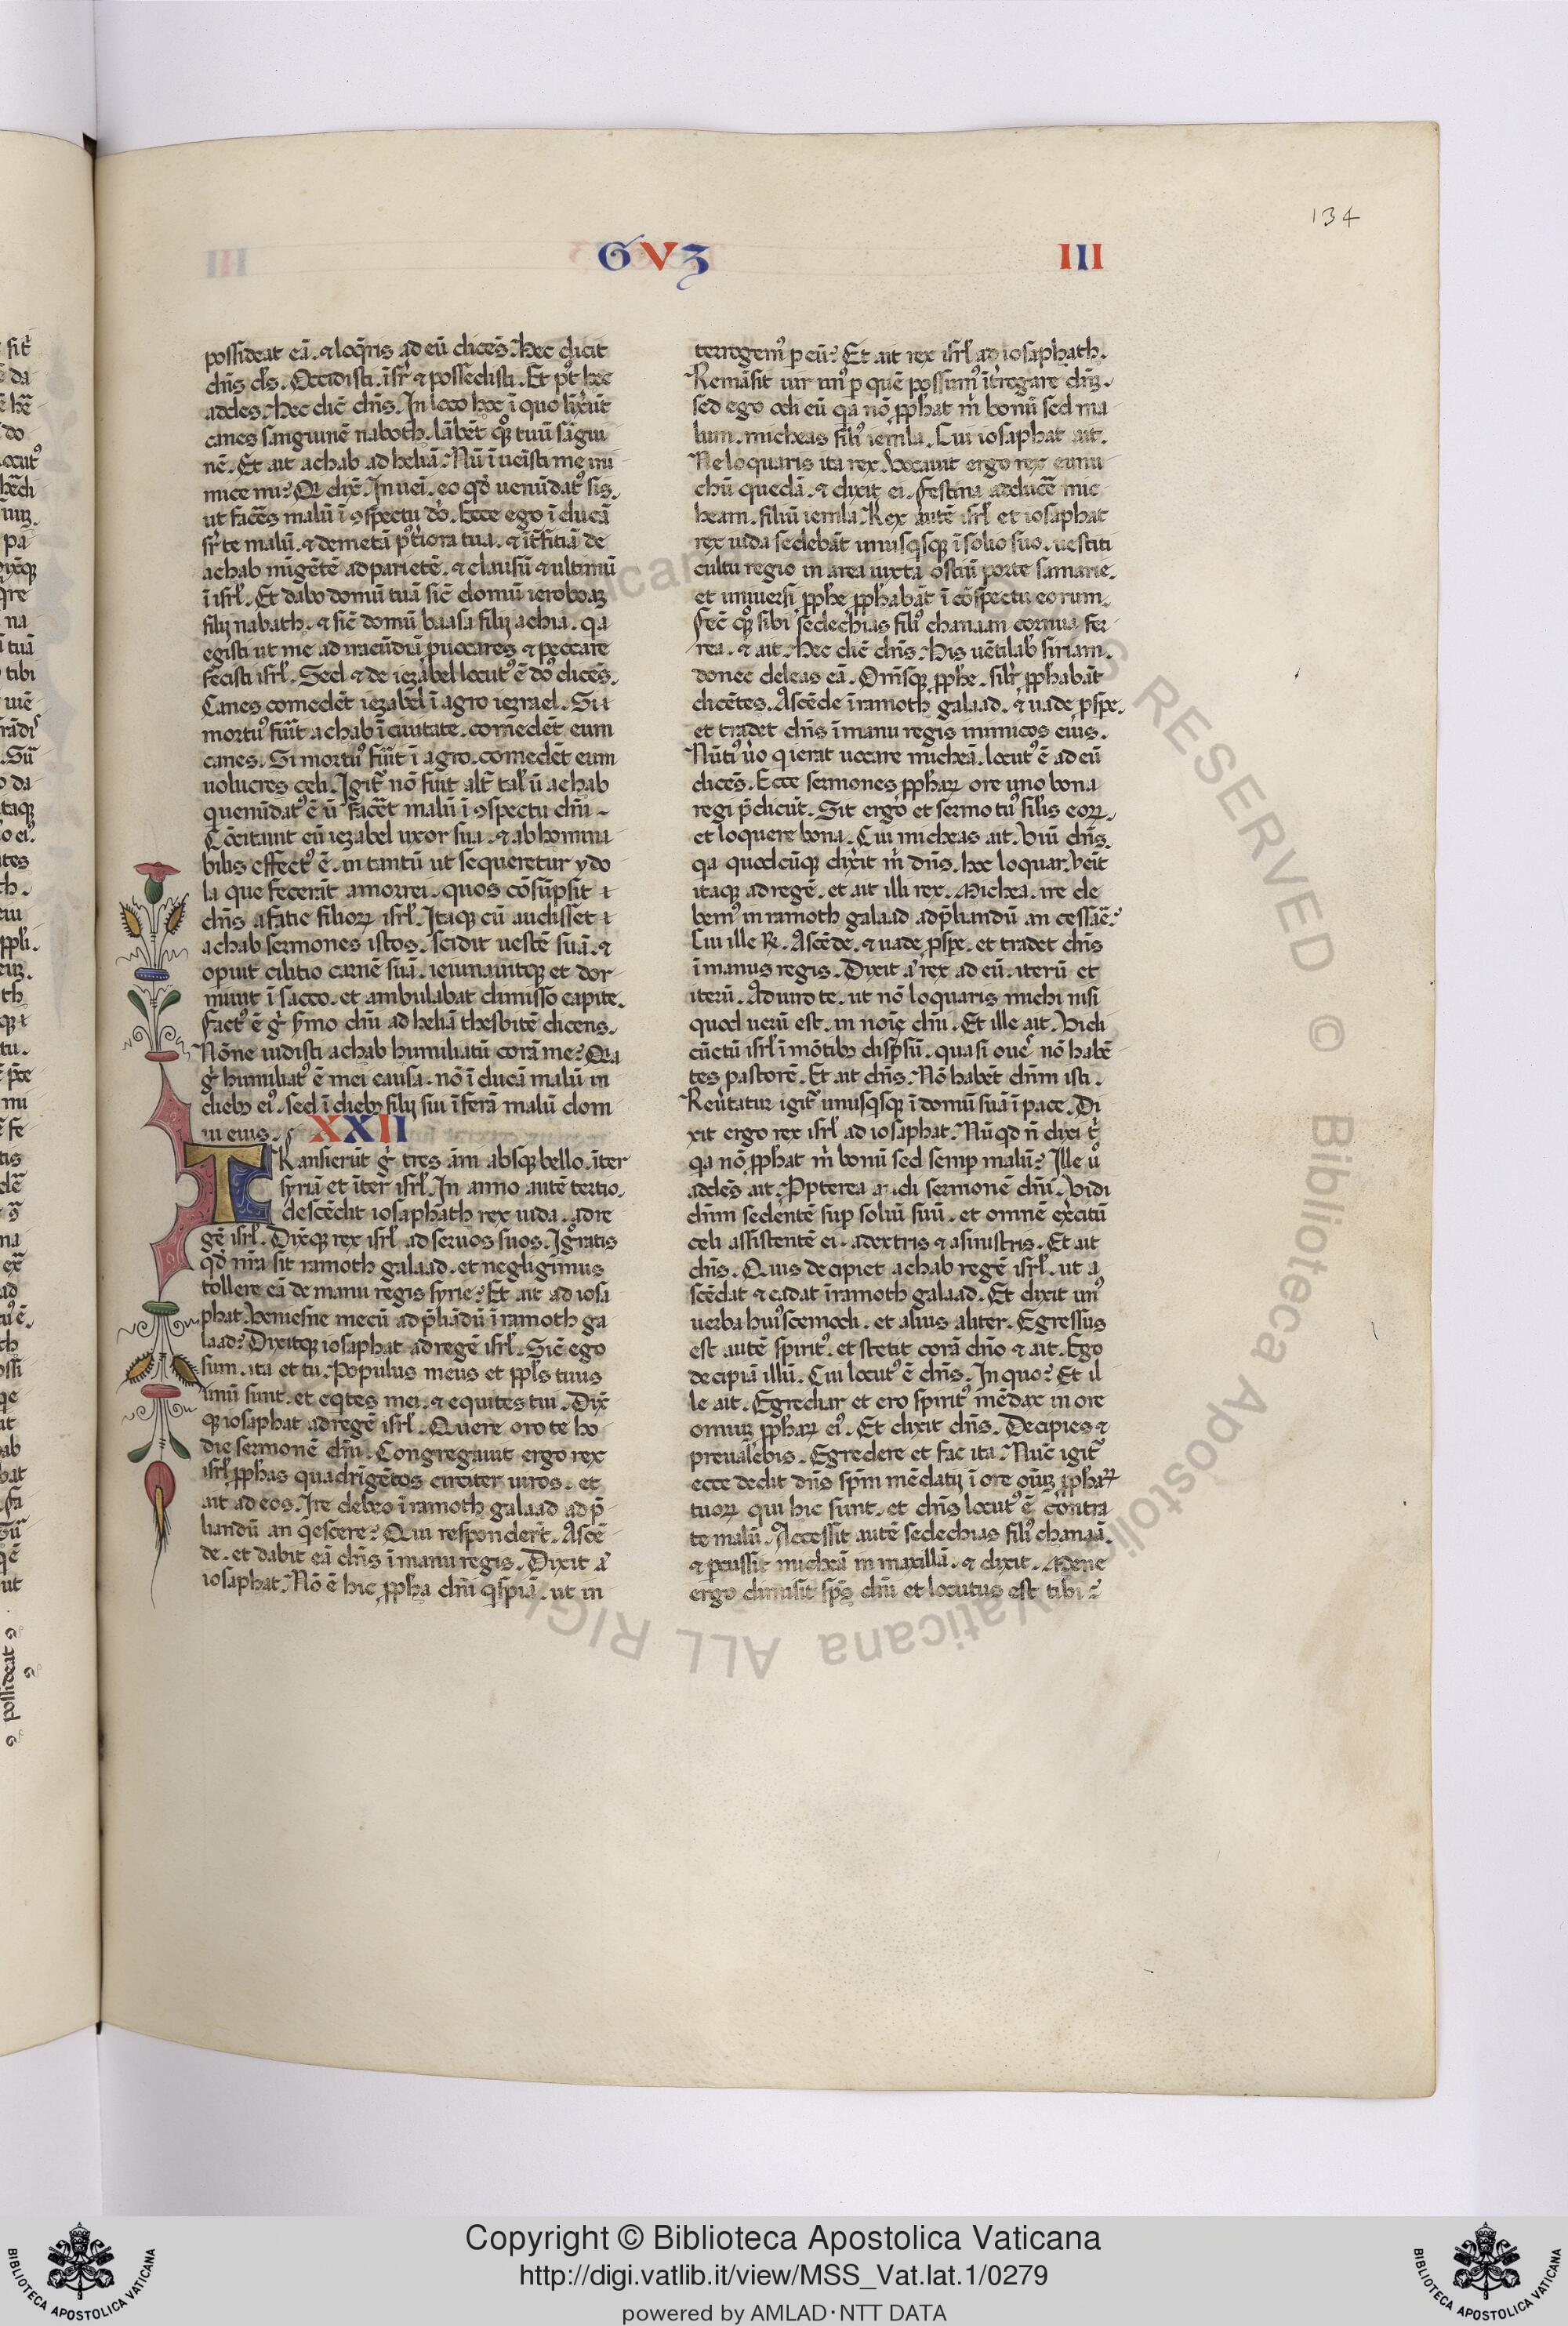 134
GVZ III
possideat eā. ⁊ loq̄ris ad eū dicēs. Hec dicit
dn̄s ds̄. Occidisti. īsr̄ ⁊ possedisti. Et pꝰt hec
addes. Hec dic̄ dn̄s. In loco hoc ī quo lix̄ūt
canes sanguinē naboth. lābēt qꝫ tuū sāgui
nē. Et ait achab ad heliā. Nū ī ueīsti me ini
mice mi? Qi dix̄. Inueī. eo qđ uenūdatꝰ sis.
ut facēs malū ī ꝯspectu dn̄i. Ecce ego ī ducā
sr̄ te malū. ⁊ demetā pꝰt̄iora tua. ⁊ īt̄fitiā de
achab mīgētē ad parietē. ⁊ clausū ⁊ ultimū
ī isrl̄. Et dabo domū tuā sic̄ domū ieroboaꝫ
filij nabath. ⁊ sic̄ domū baasa filij achia. qa
egisti ut me ad iracūdiā puocares ⁊ peccare
fecisti isrl̄. Sed ⁊ de iezabel locutꝰ ē do dicēs.
Canes comedēt iezabel ī agro iezrael. Si ⁊
mortuꝰ fuit̄ achab ī ciuitate. comedēt eum
canes. Si mortuꝰ fuit̄ ī agro. comedēt eum
uolucres celi. Igit̄ nō fuit alt̄ tal ū achab
quenūdatꝰ ē ū facēt malū ī ꝯspectu dn̄i ~
Cōcitauit eū iezabel uxor sua. ⁊ abhomina
bilis effectꝰ ē. in tantū ut sequeretur ydo
la que fecerāt amorrei. quos cōsūpsit ⁊
dn̄s a facie filioꝝ isrl̄. Itaqꝫ cū audisset ⁊
achab sermones istos. scidit uestē suā. ⁊
opuit cilitio carnē suā. ieiunauitqꝫ et dor
miuit ī sacco. et ambulabat dimisso capite.
Factꝰ ē g̊ s̄mo dn̄i ad heliā thesbitē dicens.
Nōne uidisti achab humiliatū corā me? Qia
g̊ humiliatꝰ ē mei causa. nō ī ducā malū in
diebꝫ eiꝰ. sed ī diebꝫ filij sui īferā malū dom
ui eius. XXII
TRansierūt g̊ tres āni absqꝫ bello. īter
syriā et īter isrl̄. In anno autē tertio.
descēdit iosaphath rex iuda. ad re
gē isrl̄. Dixqꝫ rex isrl̄ ad seruos suos. Igratis
qđ nr̄a sit ramoth galaad. et negligimus
tollere eā de manu regis syrie? Et ait ad iosa
phat. Veniesne mecū ad p̄liādū ī ramoth ga
laad? Dixitqꝫ iosaphat ad regē isrl̄. Sic̄ ego
sum. ita et tu. Populus meus et ppl̄s tuus
unū sunt. et eqtes mei. ⁊ equites tui. Dix̄
qꝫ iosaphat ad regē isrl̄. Quere oro te ho
die sermonē dn̄i. Congregauit ergo rex
isrl̄ ꝓphas quadrīgētos circiter uiros. et
ait ad eos. Ire debeo ī ramoth galaad ad p̄
liandū an qescere? Qui respondert̄. Ascē
de. et dabit eā dn̄s ī manu regis. Dixit a͛
iosaphat. Nō ē hic ꝓpha dn̄i qspiā. ut in
terrogemꝰ p eū? Et ait rex isrl̄ ad iosaphath.
Remāsit uir unꝰ p quē possumꝰ ītrogare dn̄ꝫ.
sed ego odi eū qa nō ꝓphat m̄ bonū sed ma
lum. micheas filiꝰ iemla. Cui iosaphat ait.
Ne loquaris ita rex. Vocauit ergo rex eunu
chū quedā. ⁊ dixit ei. Festina adducē mic
heam. filiū iemla. Rex autē isrl̄ et iosaphat
rex iuda sedebāt unusqsqꝫ ī solio suo. uestiti
cultu regio in area iuxta ostiū porte samarie.
et uniuersi ꝓphe ꝓphabāt ī cōspectu eorum.
Fec̄ qꝫ sibi sedechias filiꝰ chanaan cornua fer
rea. ⁊ ait. Hec dic̄ dn̄s. His uētilab̄ siriam.
donec deleas eā. Omīsqꝫ ꝓphe. silr̄ ꝓphabāt
dicētes. Ascēde ī ramoth galaad. ⁊ uade pspe.
et tradet dn̄s ī manu regis inimicos eius.
Nūtiꝰ ūo q ierat uocare micheā. locutꝰ ē ad eū
dicēs. Ecce sermones ꝓphaꝝ ore uno bona
regi p̄dicūt. Sit ergo et sermo tuꝰ silis eoꝝ.
et loquere bona. Cui micheas ait. Viuit dn̄s.
qa quodcūqꝫ dixit m̄ dn̄s. hoc loquar. Venit
itaqꝫ ad regē. et ait illi rex. Michea. ire de
bemꝰ in ramoth galaad ad p̄liandū an cessāe?
Cui ille R. Ascēde. ⁊ uade pspe. et tradet dn̄s
ī manus regis. Dixit a͛ rex ad eū. iterū et
iterū. Adiuro te. ut nō loquaris michi nisi
quod uerū est. in noīe dn̄i. Et ille ait. Vidi
cūctū isrl̄ ī mōtibꝫ dispsū. quasi oues nō habē
tes pastorē. Et ait dn̄s. Nō habēt dn̄m isti.
Reūtatur igit̄ unusqsqꝫ ī domū suā ī pace. Di
xit ergo rex isrl̄ ad iosaphat. Nūqd n̄ dixi t̄
qa nō ꝓphat m̄ bonū sed semp malū? Ille u͛
addēs ait. Ppterea audi sermonē dn̄i. Vidi
dn̄m sedentē sup soliū suū. et omnē ex̄citū
celi assistentē ei. a dextris ⁊ a sinistris. Et ait
dn̄s. Quis decipiet achab regē isrl̄. ut a
scēdat ⁊ cadat ī ramoth galaad. Et dixit unꝰ
uerba huiꝰscemodi. et alius aliter. Egressus
est autē spiritꝰ. et stetit corā dn̄o ⁊ ait. Ego
decipiā illū. Cui locutꝰ ē dn̄s. In quo? Et il
le ait. Egrediar et ero spiritꝰ mēdax in ore
omniuꝫ ꝓphaꝝ eiꝰ. Et dixit dn̄s. Decipies ⁊
preualebis. Egredere et fac ita. Nuc̄ igit̄
ecce dedit dn̄s spm̄ mēdatij ī ore oīuꝫ ꝓphaꝝ
tuoꝝ qui hic sunt. et dn̄s locutꝰ ē contra
te malū. Accessit autē sedechias filiꝰ chanaā.
⁊ pcussit micheā in maxillā. ⁊ dixit. Mene
ergo dimisit sps̄ dn̄i et locutus est tibi?
Copyright © Biblioteca Apostolica Vaticana
http://digi.vatlib.it/view/MSS_Vat.lat.1/0279
powered by AMLAD·NTT DATA